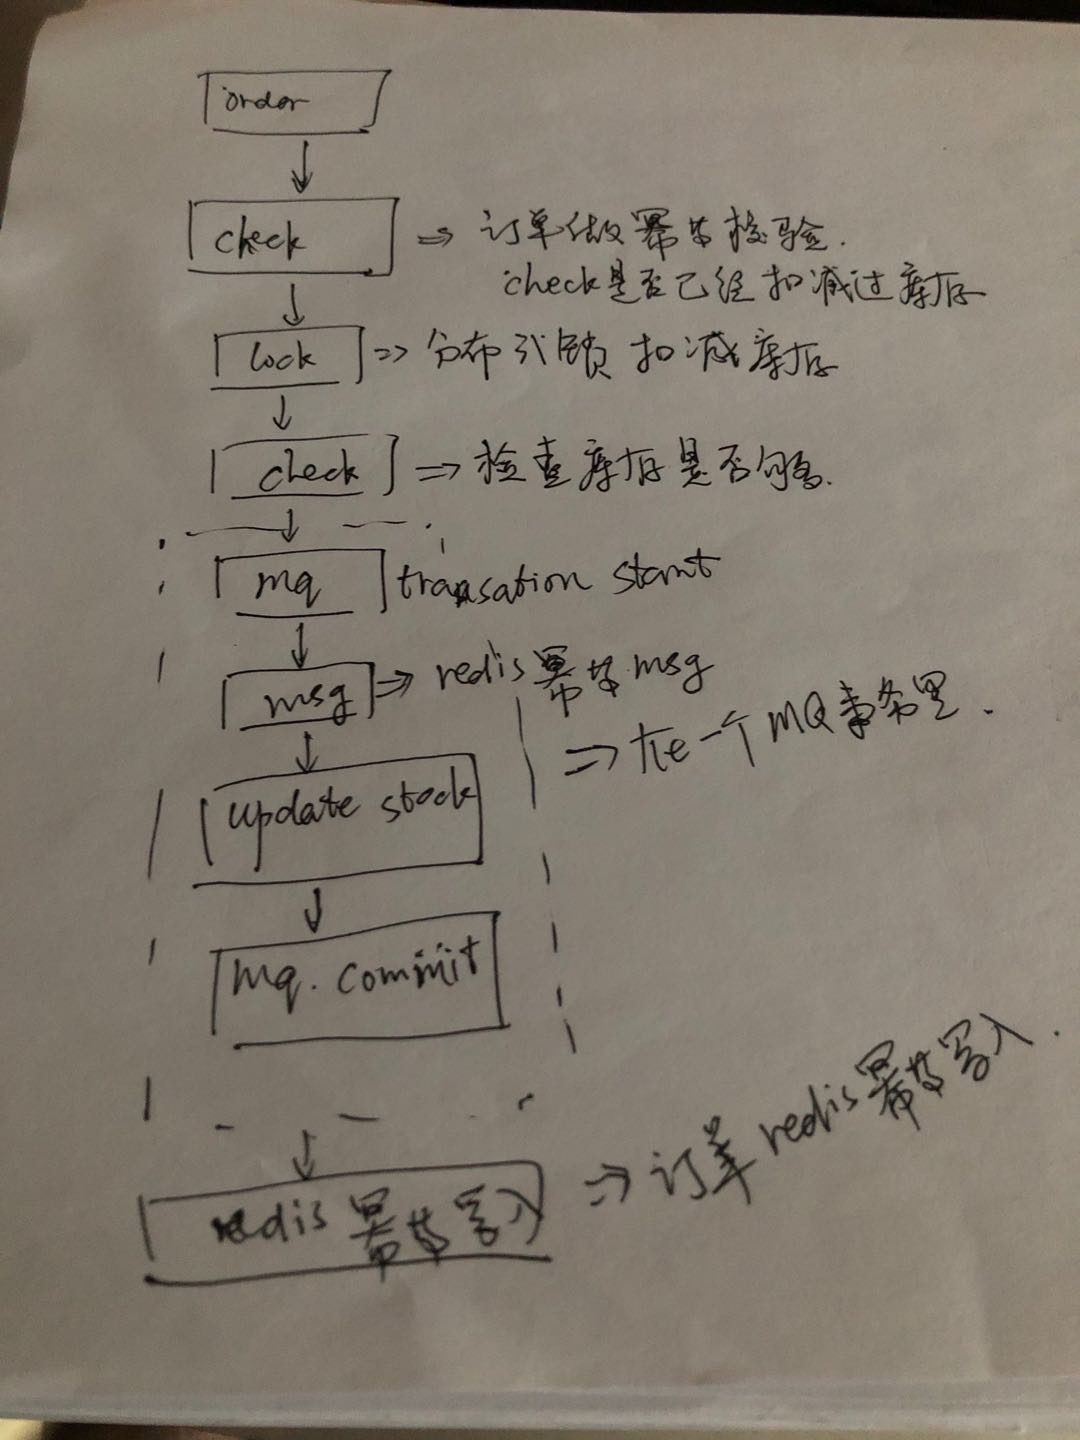 order
check
⇒ 订单做幂等校验.
check是否已经扣减过库存
lock
⇒ 分布式锁 扣减库存
check
⇒ 检查库存是否够.
mq
transation start
msg
⇒ redis幂等msg
⇒ 在一个MQ事务里.
update stock
mq.commit
redis幂等写入
⇒ 订单redis幂等写入.